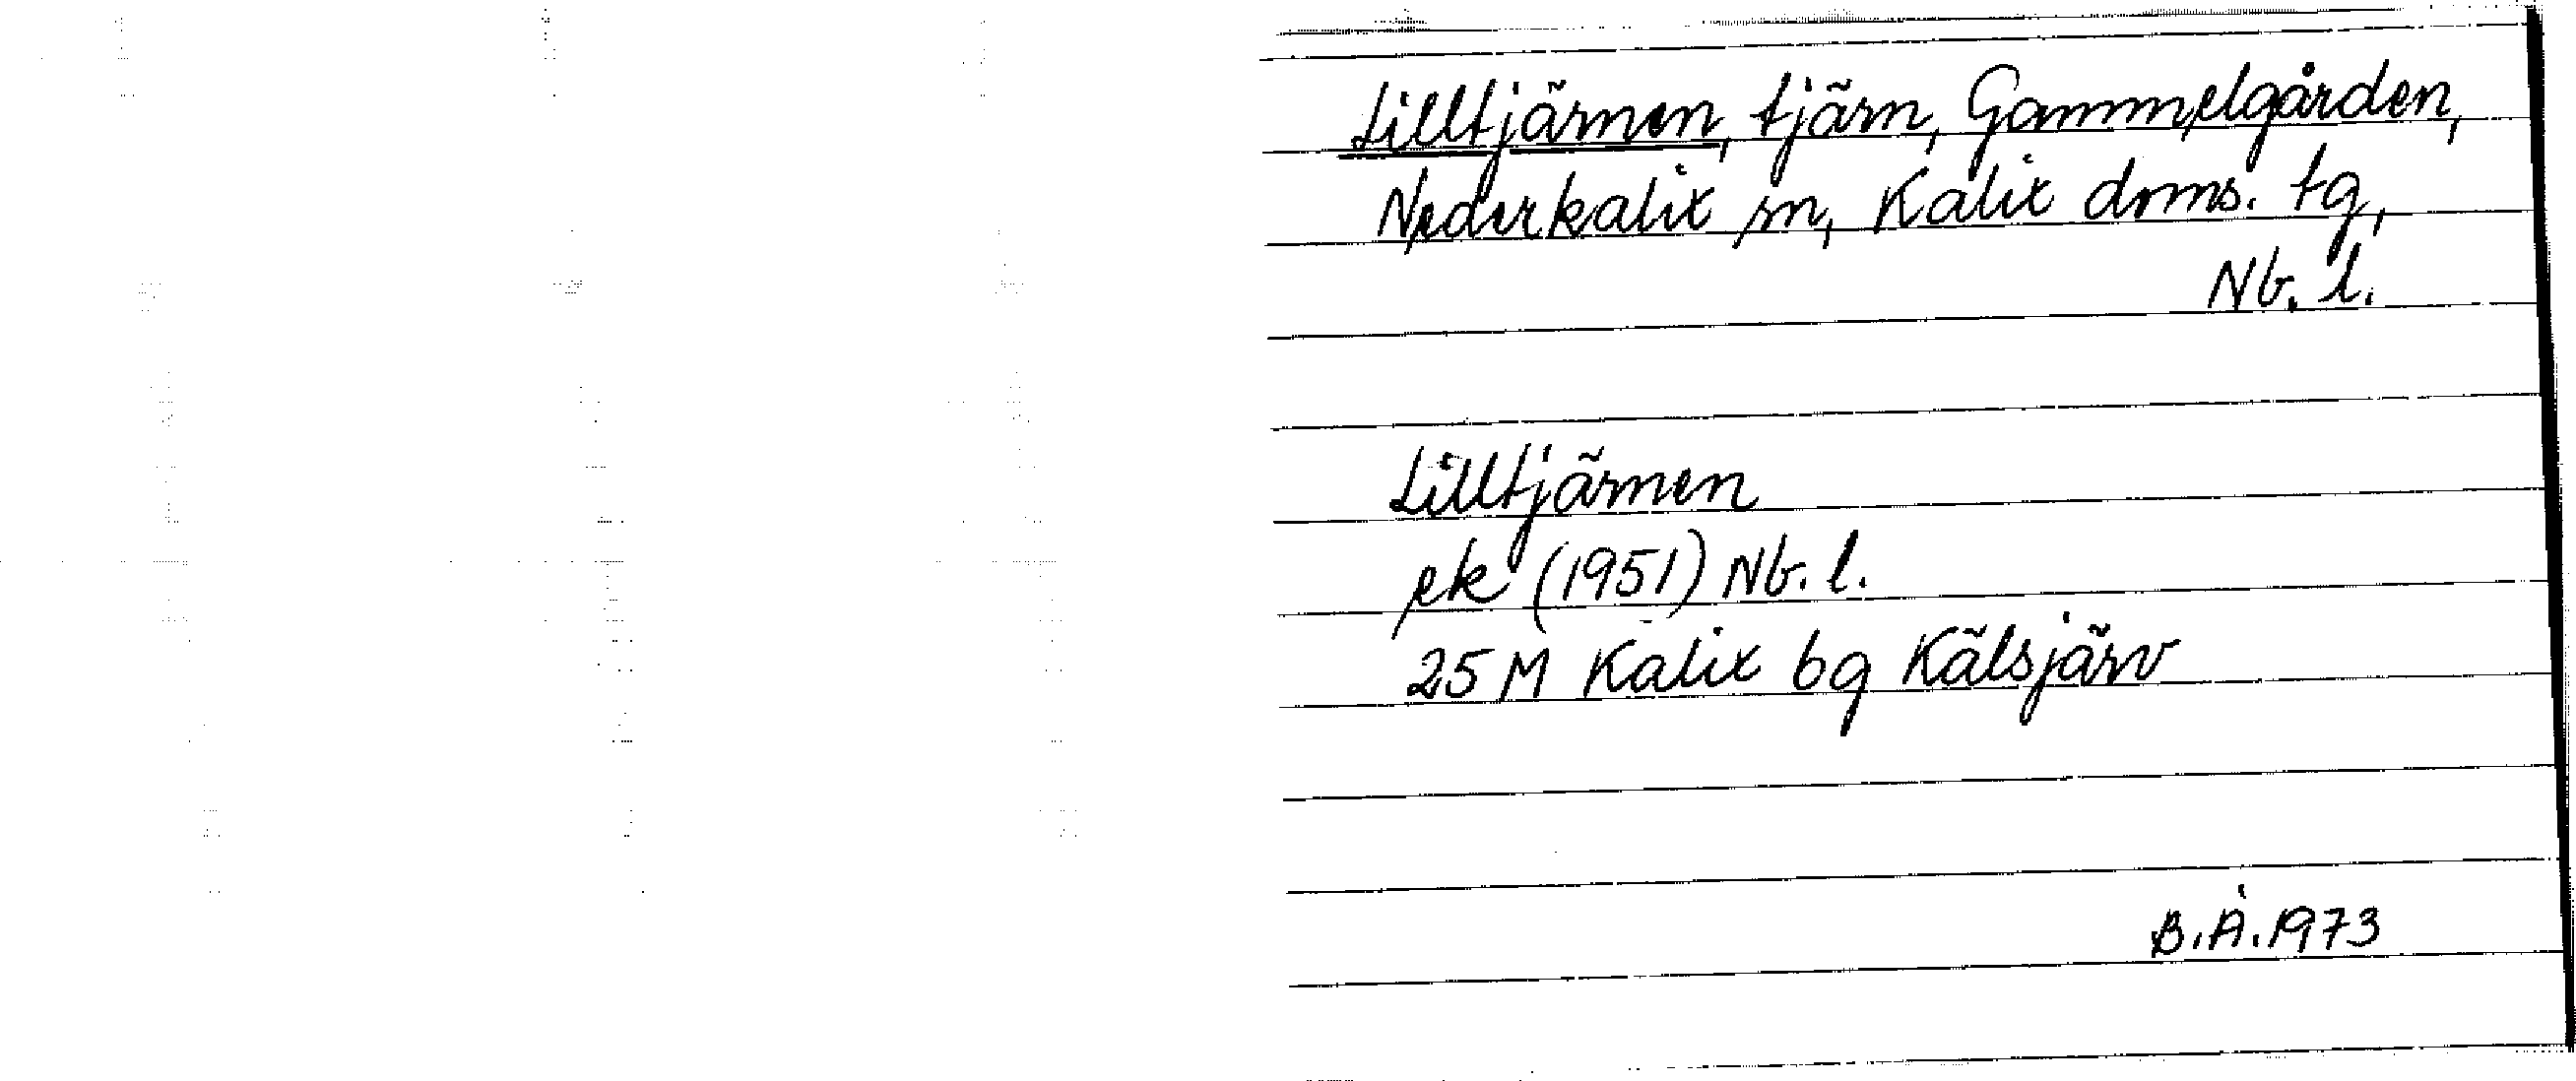 Lilltjärnen, tjärn, Gammelgården,
Nederkalix sn, Kalix doms. tg,
Nb. l.
Lilltjärnen
ek (1951) Nb. l.
25 M Kalix bg Kälsjärv
B.Å. 1973